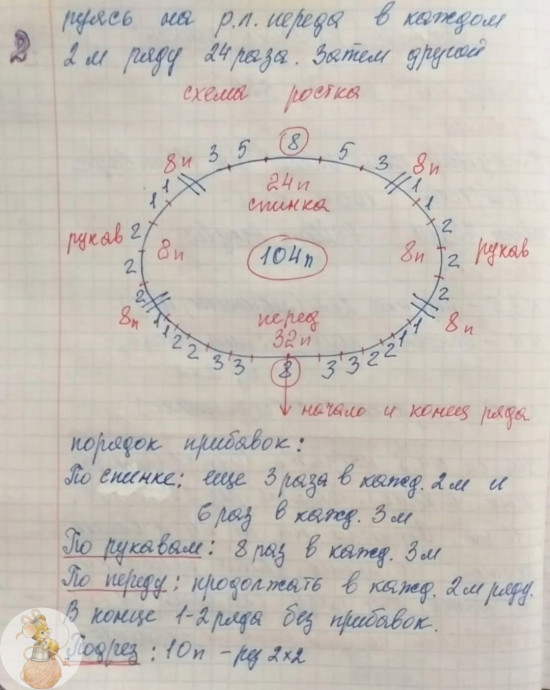 руясь на р.л. переда в каждом
2 2м ряду 24 раза. Затем другой
схема ростка
8п 3 5 8 5 3 8п
1 1 24п 1 1
спинка
2 2
рукав 8п 104п 8п рукав
2 2
2 2
8п перед 8п
1 1 2 2 3 3 32п 3 3 2 2 1 1
8
начало и конец ряда
порядок прибавок:
По спинке: еще 3 раза в кажд. 2м и
6 раз в кажд. 3м
По рукавам: 8 раз в кажд. 3м
По переду: продолжать в кажд. 2м ряду.
В конце 1-2 ряда без прибавок.
Подрез: 10п - рез 2х2